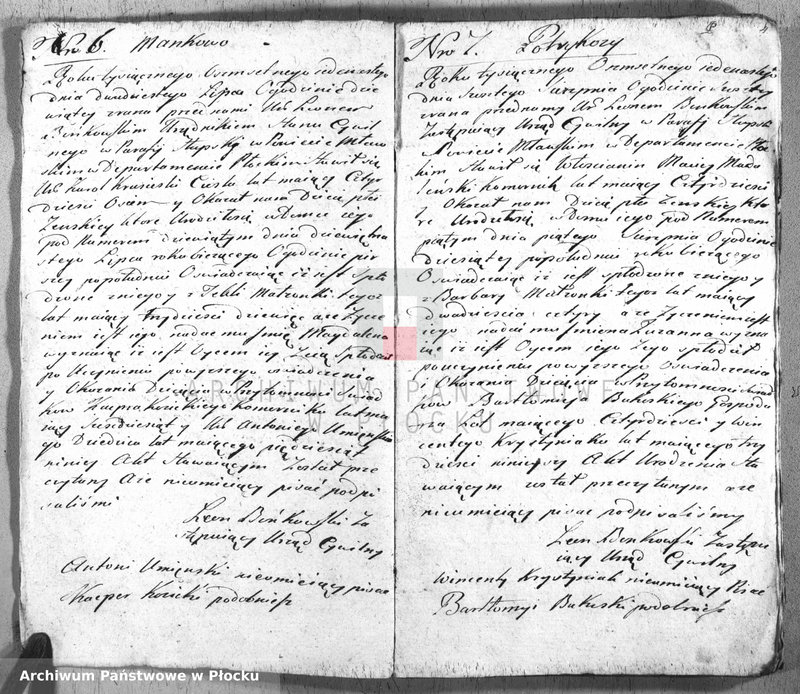 Nro 6. Mankowo
Roku tysiącznego Osmsetnego iedenastego
dnia dwudziestego Lipca Ogodzinie dzie
wiątey zrana przed nami Ur. Leonem
Bońkowskim Urzędnikiem Stanu Cywil
nego w Parafij Słupski w Powiecie Mław
skim w Departamencie Płockim Stawił się
Ur. Karol Krasinski Cieśla lat maiący Czter
dzieści Osiem y Okazał nam Dziecię płci
Zenskiey ktore Urodziło się w Domu iego
pod Numerem dziewiątym dnia dziewiętna
stego Lipca roku bieżącego Ogodzinie pier
szey popołudniu Oswiadczaiąc iż iest spło
dzone zniego y z Tekli Małżonki iego
lat maiący trzydzieści dziewięć a że Zycze
niem iest iego nadać mu Imię Magdalena
wyznaiąc iż iest Oycem iey
po Uczynieniu powyższego oswiadczenia
y Okazania Dziecięcia w Przytomności Świad
kow Kacpra Kozickiego Komornika lat ma
iący Sześdziesiąt y Ur. Antoniego Umińskie
go Dziedzica lat maiącego pięćdziesiąt
niniey Akt Stawaiącym Został prze
czytany Ale nieumieiący pisać podpi
saliśmi
Leon Bońkowski Za
stępuiący Urząd Cywilny
Antoni Umiński nieumieiący pisac
Kacper Kozicki podobnież
Nro 7. Potrykozy
Roku tysiącznego Osmsetnego iedenastego
dnia Szustego Sierpnia Ogodzinie Szustey
zrana przednamy Ur. Leonem Bońkowskim
Zastępuiący Urząd Cywilny w Parafij Słupski
Powiecie Mławskim w Departamencie Płoc
kim Stawił się Włoscianin Maciey Mada
lenski komornik lat maiący Czterdzieści
y Okazał nam Dziecię płci Zenskiey kto
re Urodziło się w Domu iego pod Numerem
piątym dnia piątego Sierpnia Ogodzinie
dziesiątey popołudniu roku bieżącego
Oswiadczaiąc iż iest spłodzone zniego y
z Barbary Małżonki iego lat maiący
dwadzieścia cztery a że Zyczeniem iest
iego nadać mu Imiona Zuzanna wyzna
iąc iż iest Oycem iego Jego spłodził
pouczynieniu powyższego Oswiadczenia
i Okazania Dziecięcia w Przytomności Swiad
kow Bartłomieja Bukoskiego Gospoda
rza Lat maiącego Czterdzieści y Win
centego Krystyniaka lat maiącego trzy
dzieści niniejszy Akt Urodzenia Sta
waiącym został przeczytanym a że
nieumieiący pisac podpisaliśmy
Leon Bońkowski Zastęp
uiący Urząd Cywilny
Wincenty Krystyniak nieumieiący Pisac
Bartłomiy Bukoski podobnież
ARCHIWUM PAŃSTWOWE
W PŁOCKU
Archiwum Państwowe w Płocku